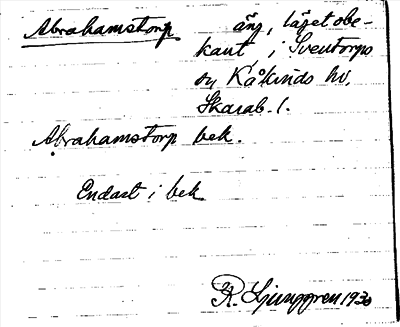 Abrahamstorp äng, läget obe-
kant, i Sventorps
sn, Kåkinds hd,
Skarab. l.
Abrahamstorp bek.
Endast i bek
R. Ljunggren 1930